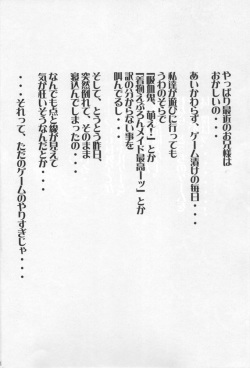 やっぱり最近のお兄様は
おかしいの・・・
あいかわらず、ゲーム漬けの毎日・・・
私達が遊びに行っても
うわのそらで
【吸血鬼、萌え！】とか
【着物えぷろんメイド最高ーッ】とか
訳の分からない事を
叫んでるし・・・
そして、とうとう昨日、
突然倒れて、そのまま
寝込んでしまったの・・・
なんでも点と線が見えて
気が狂いそうなんだとか・・・
・・・それって、ただのゲームのやりすぎじゃ・・・